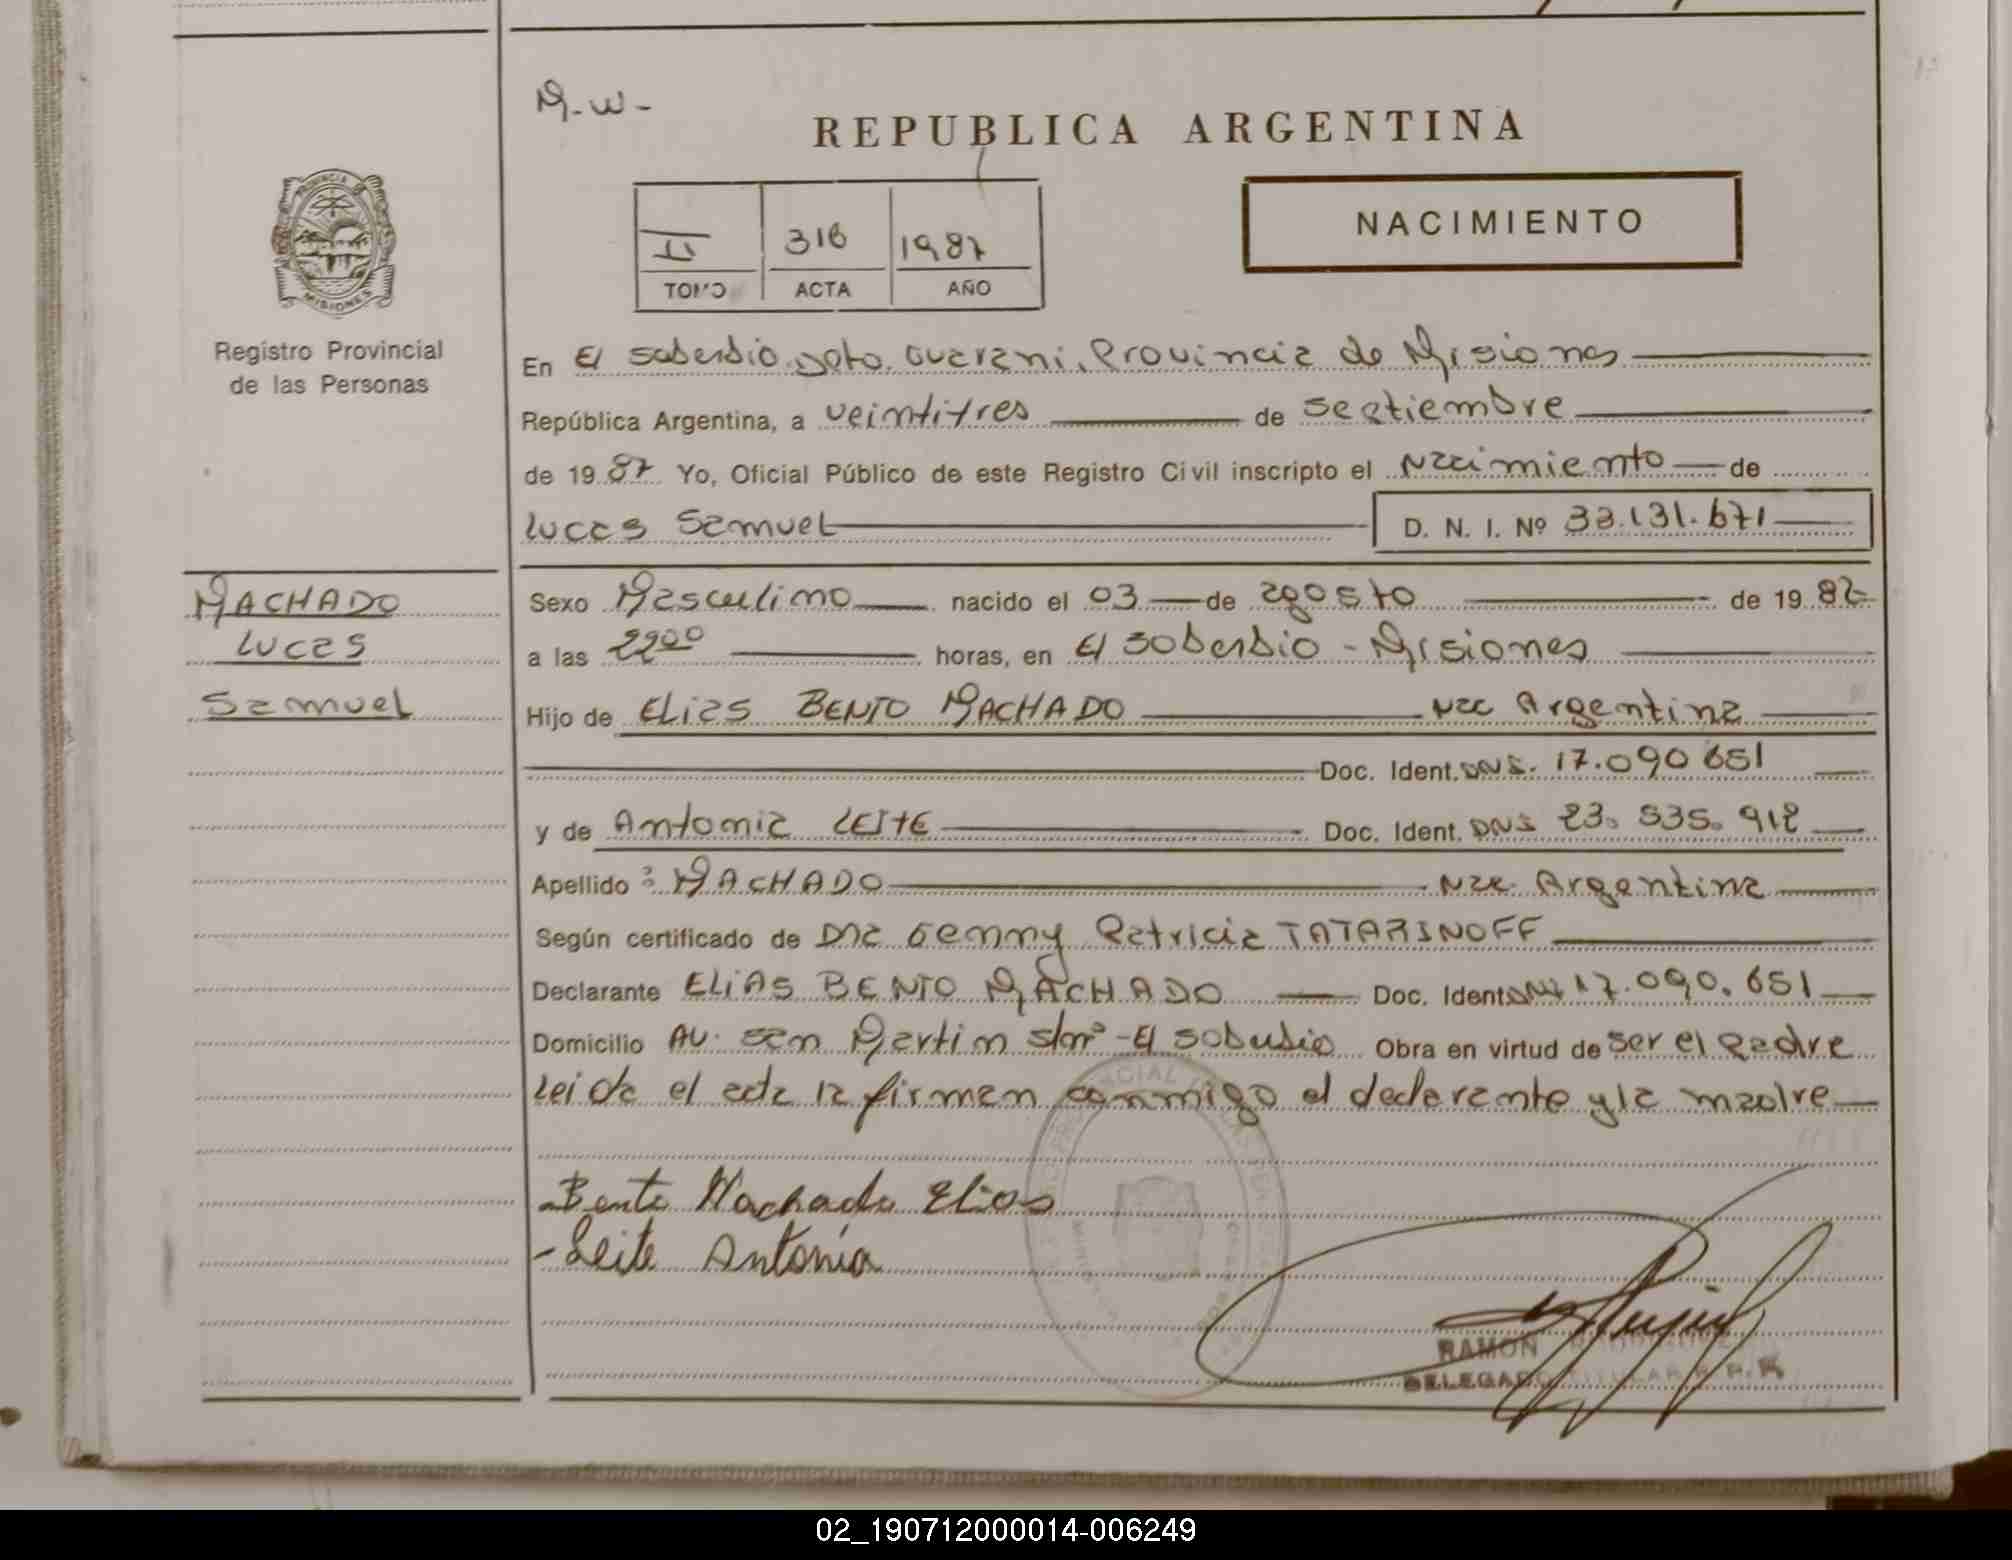 M.W-
REPUBLICA ARGENTINA
II 316 1987
TOMO ACTA AÑO
NACIMIENTO
PROVINCIA DE
MISIONES
Registro Provincial
de las Personas
En El Soberbio. Dpto. Guarani, Provincia de Misiones
República Argentina, a veintitres de Septiembre
de 1987 Yo, Oficial Público de este Registro Civil inscripto el Nacimiento de
Lucas Samuel D. N. I. Nº 33.131.671
MACHADO
Lucas
Samuel
Sexo Masculino nacido el 03 de agosto de 1987
a las 2200 horas, en El Soberbio - Misiones
Hijo de Elias BENTO MACHADO Nac Argentina
Doc. Ident. DNI. 17.090 651
y de Antonia LEITE Doc. Ident. DNI 23.535.912
Apellido : MACHADO Nac. Argentina
Según certificado de Dra Genny Patricia TATARINOFF
Declarante ELIAS BENTO MACHADO Doc. Ident DNI 17.090.651
Domicilio AV. San Martin s/nº - El Soberbio Obra en virtud de ser el Padre
Leida el acta la firman conmigo el declarante y la madre
Bento Machado Elias
- Leite Antonia
RAMON
DELEGADO TITULAR R. P.
02_190712000014-006249